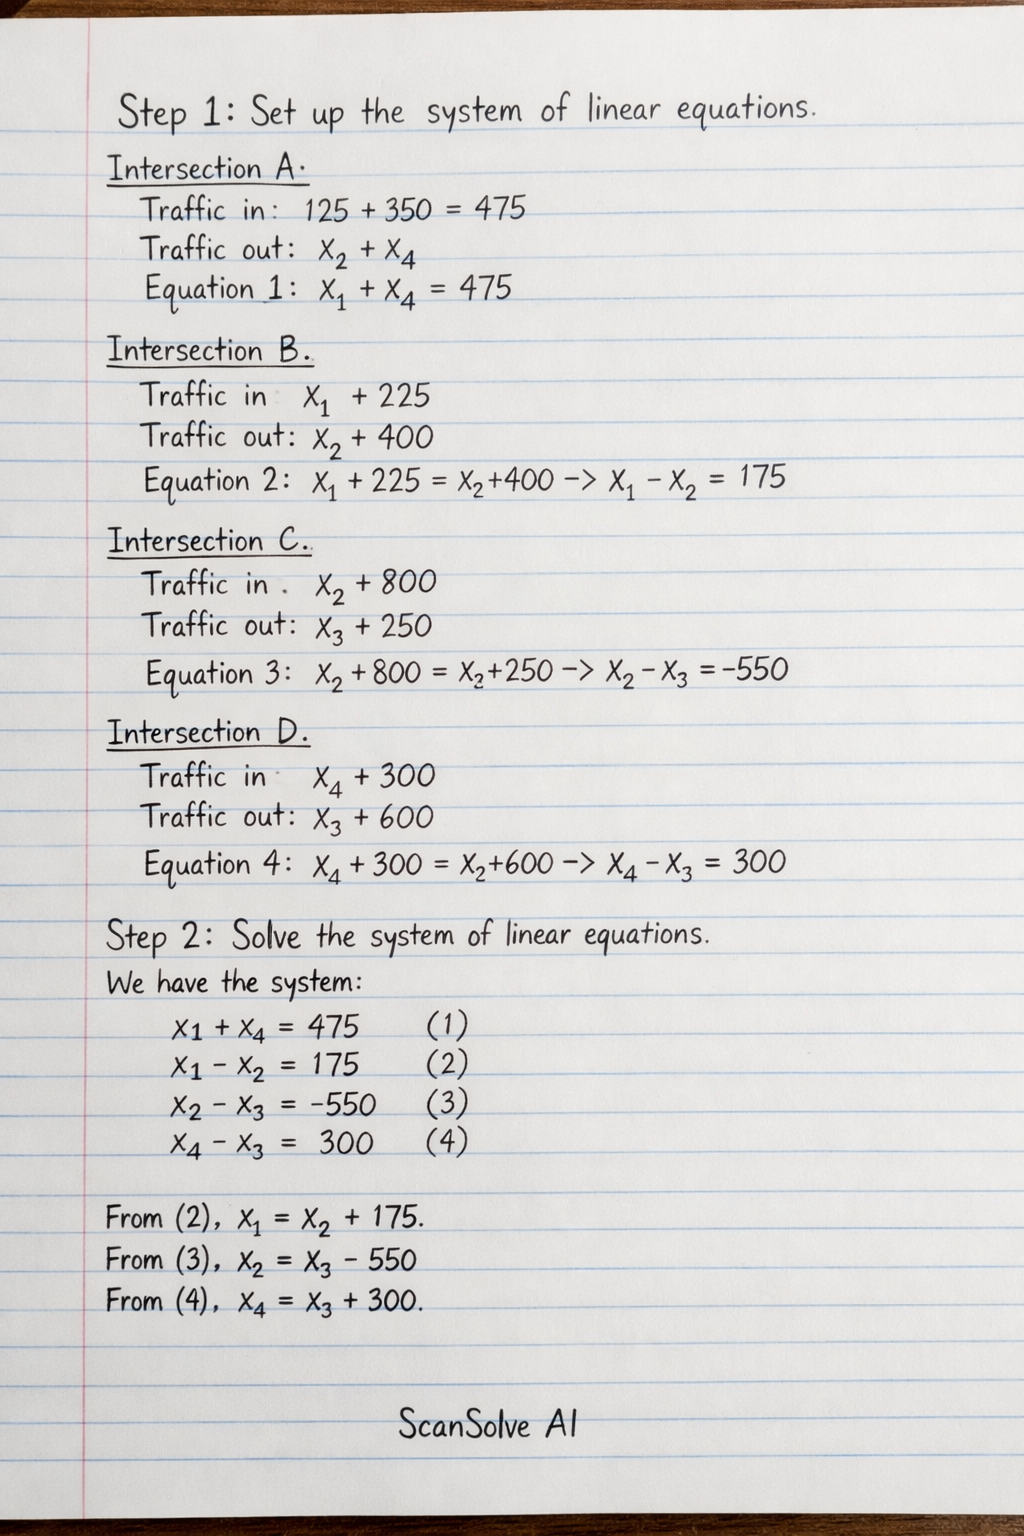 Step 1: Set up the system of linear equations.
Intersection A.
Traffic in: 125 + 350 = 475
Traffic out: X₂ + X₄
Equation 1: X₁ + X₄ = 475
Intersection B.
Traffic in X₁ + 225
Traffic out: X₂ + 400
Equation 2: X₁ + 225 = X₂+400 -> X₁ - X₂ = 175
Intersection C.
Traffic in . X₂ + 800
Traffic out: X₃ + 250
Equation 3: X₂ + 800 = X₂+250 -> X₂ - X₃ = -550
Intersection D.
Traffic in X₄ + 300
Traffic out: X₃ + 600
Equation 4: X₄ + 300 = X₂+600 -> X₄ - X₃ = 300
Step 2: Solve the system of linear equations.
We have the system:
X₁ + X₄ = 475 (1)
X₁ - X₂ = 175 (2)
X₂ - X₃ = -550 (3)
X₄ - X₃ = 300 (4)
From (2), X₁ = X₂ + 175.
From (3), X₂ = X₃ - 550
From (4), X₄ = X₃ + 300.
ScanSolve AI